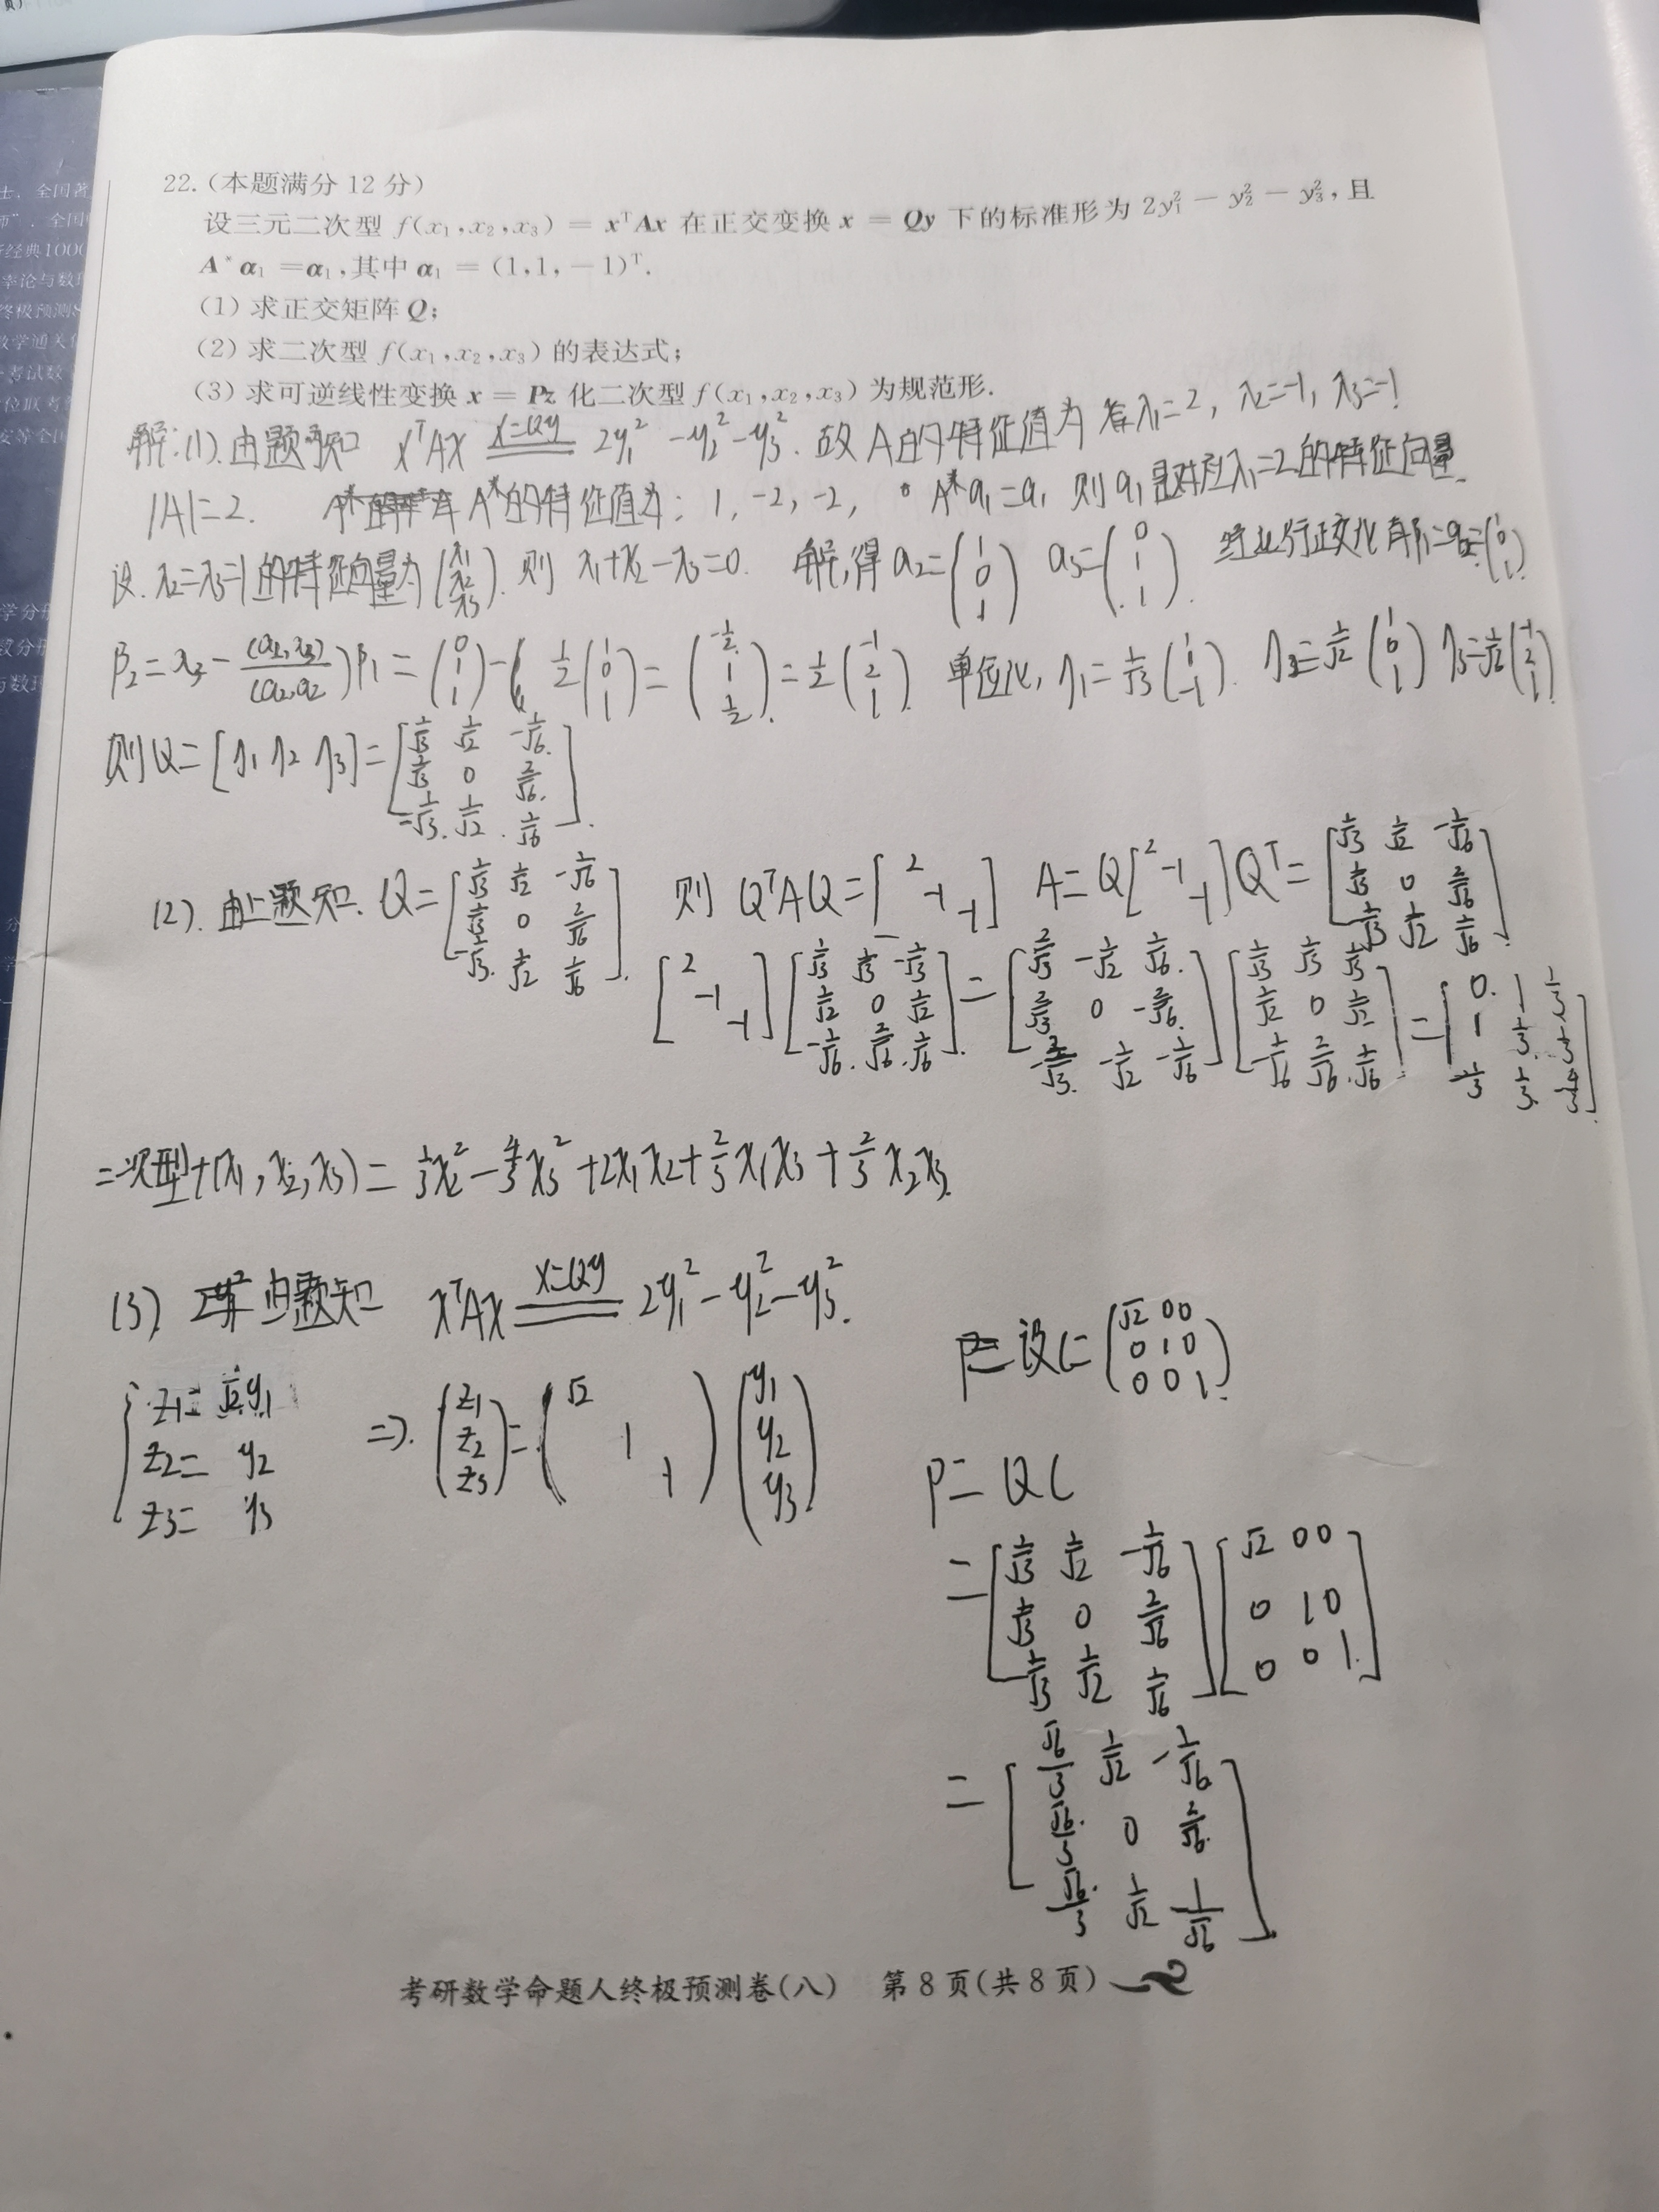 22.(本题满分 12 分)
设三元二次型 f(x₁,x₂,x₃) = xᵀAx 在正交变换 x = Qy 下的标准形为 2y₁² − y₂² − y₃², 且
A*α₁ = α₁, 其中 α₁ = (1,1,−1)ᵀ.
(1) 求正交矩阵 Q;
(2) 求二次型 f(x₁,x₂,x₃) 的表达式;
(3) 求可逆线性变换 x = Pz 化二次型 f(x₁,x₂,x₃) 为规范形.
解:(1).由题可知 xᵀAx x=Qy 2y₁² −y₂²−y₃². 故A的特征值为 λ₁=2, λ₂=−1, λ₃=−1
|A|=2. A*的特征值为: 1, −2, −2, A*α₁=α₁ 则α₁是对应λ₁=2的特征向量.
设. λ₂=λ₃=−1的特征向量为 (x₁ x₂ x₃). 则 x₁+x₂−x₃=0. 解得 α₂=(1 0 1) α₃=(0 1 1). 进行正交化 β₁=α₂=(1 0 1)
β₂=α₃−(α₂,α₃)/(α₂,α₂)β₁=(0 1 1)−1/2(1 0 1)=(−1/2 1 1/2)=1/2(−1 2 1). 单位化, η₁=1/√3(1 1 −1). η₂=1/√2(1 0 1) η₃=1/√6(−1 2 1)
则Q=[η₁ η₂ η₃]=[1/√3 1/√2 −1/√6 1/√3 0 2/√6 −1/√3 1/√2 1/√6]
(2). 由上题知. Q=[1/√3 1/√2 −1/√6 1/√3 0 2/√6 −1/√3 1/√2 1/√6]. 则 QᵀAQ=[2 −1 −1] A=Q[2 −1 −1]Qᵀ=[1/√3 1/√2 −1/√6 1/√3 0 2/√6 −1/√3 1/√2 1/√6]
[2 −1 −1][1/√3 1/√3 −1/√3 1/√2 0 1/√2 −1/√6 2/√6 1/√6]=[2/√3 −1/√2 1/√6 2/√3 0 −2/√6 −2/√3 −1/√2 −1/√6][1/√3 1/√3 1/√3 1/√2 0 1/√2 −1/√6 2/√6 1/√6]=
二次型f(x₁,x₂,x₃)=1/3x₂²−4/3x₃²+2x₁x₂+2/3x₁x₃+2/3x₂x₃.
(3). 由题知 xᵀAx x=Qy 2y₁²−y₂²−y₃².
设C=(√2 0 0 0 1 0 0 0 1).
{z₁=√2y₁ z₂=y₂ z₃=y₃ ⇒ (z₁ z₂ z₃)=(√2 1 1)(y₁ y₂ y₃)
P=QC
=[1/√3 1/√2 −1/√6 1/√3 0 2/√6 −1/√3 1/√2 1/√6][√2 0 0 0 1 0 0 0 1]
=[√6/3 1/√2 −1/√6 √6/3 0 2/√6 −√6/3 1/√2 1/√6]
考研数学命题人终极预测卷(八) 第 8 页(共 8 页)